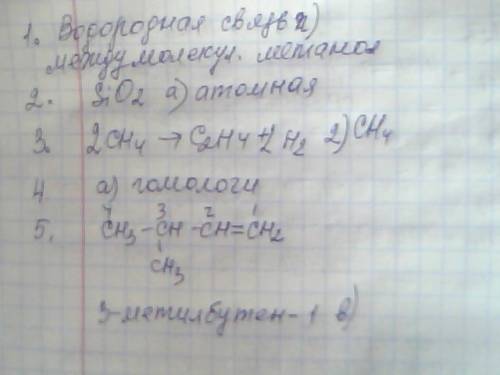 1. Водородная связь г)
между молекул. метанол
2. SiO2 а) атомная
3. 2CH4 → C2H4 + 2H2 2) CH4
4 а) гомологи
5. 4 3 2 1
CH3 – CH – CH = CH2
CH3
3-метилбутен-1 в)